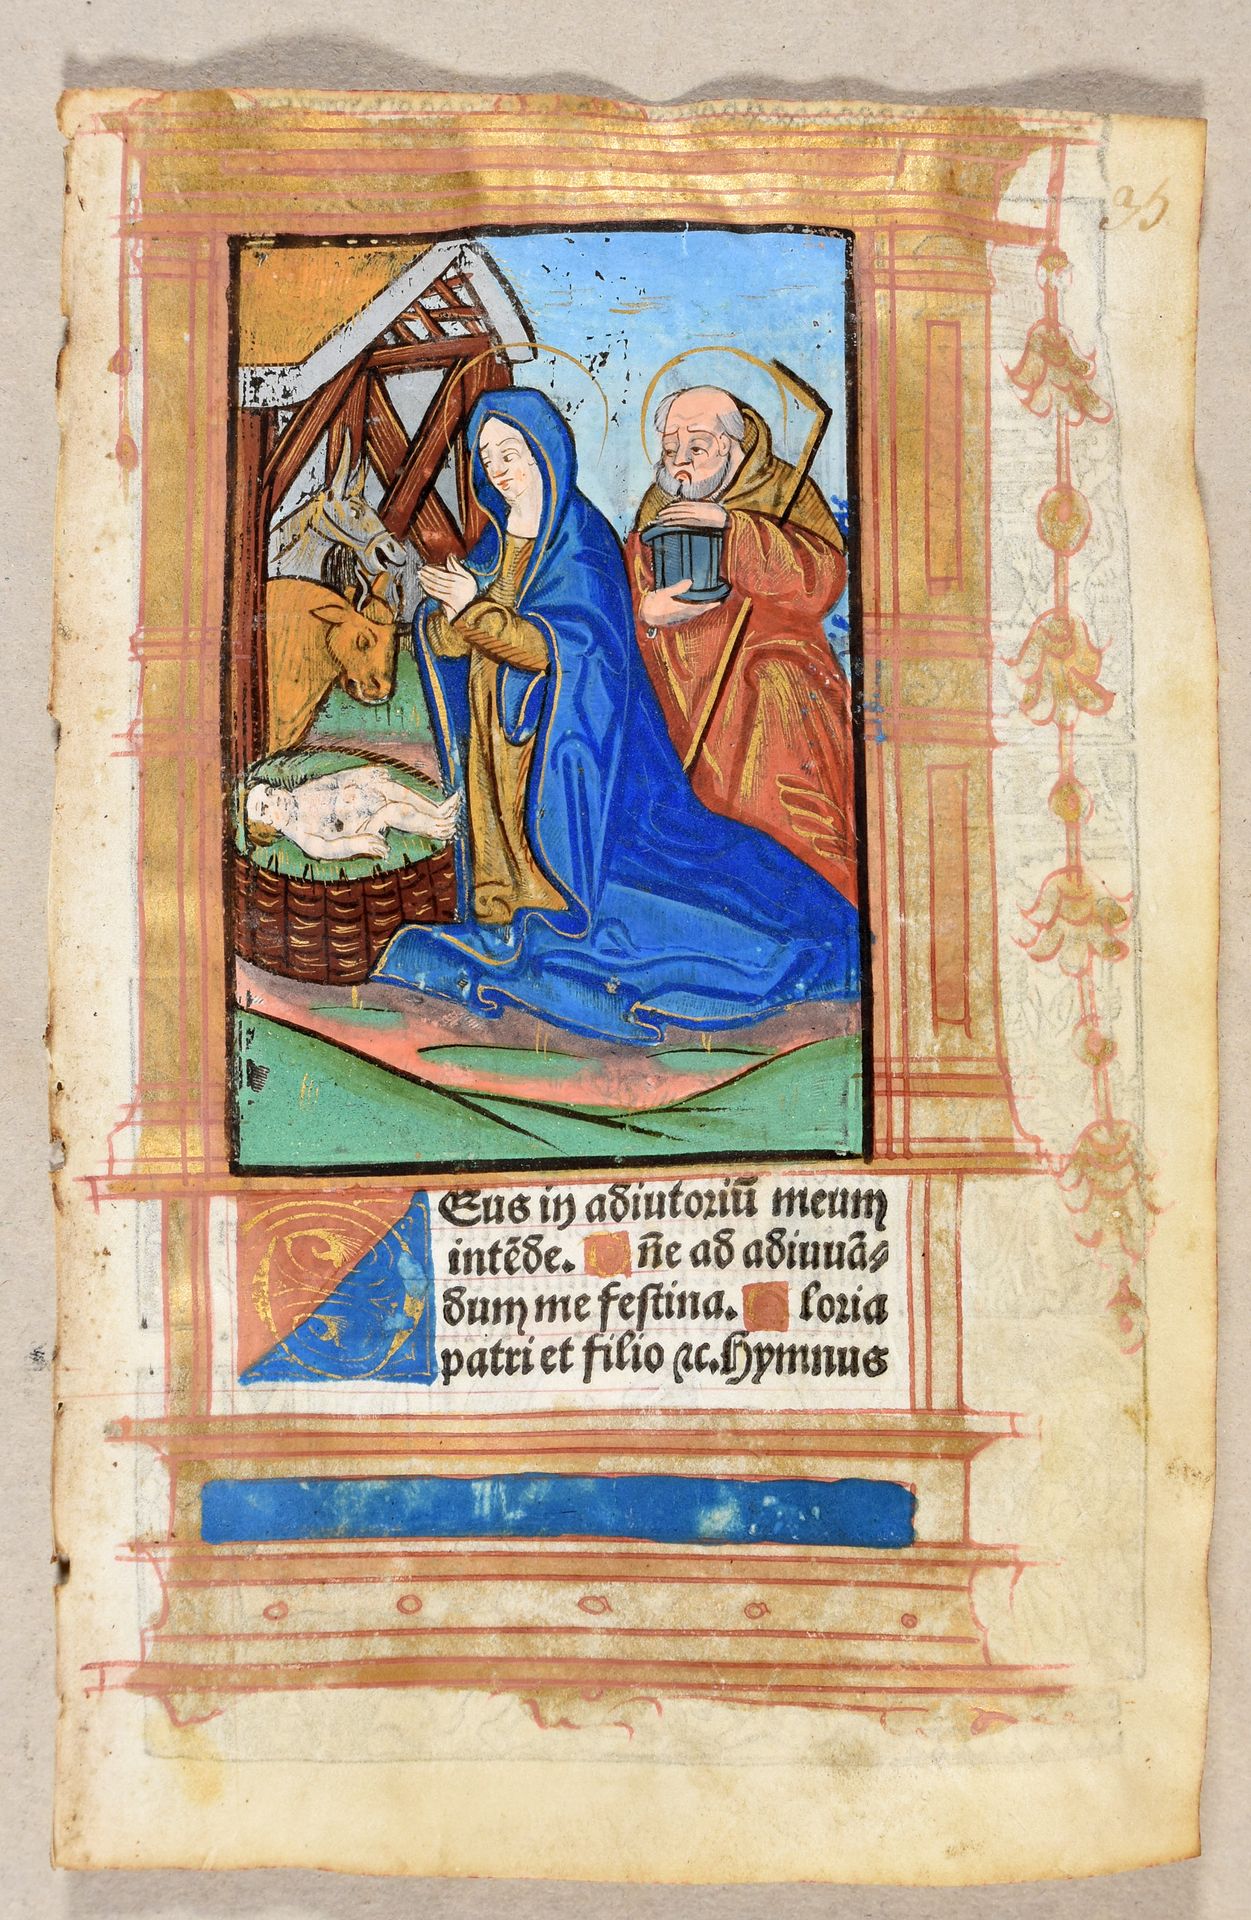 35
Deus in adiutoriū meum
intēde. Dñe ad adiuuā⸗
dum me festina. Gloria
patri et filio ⁊c. Hymnus